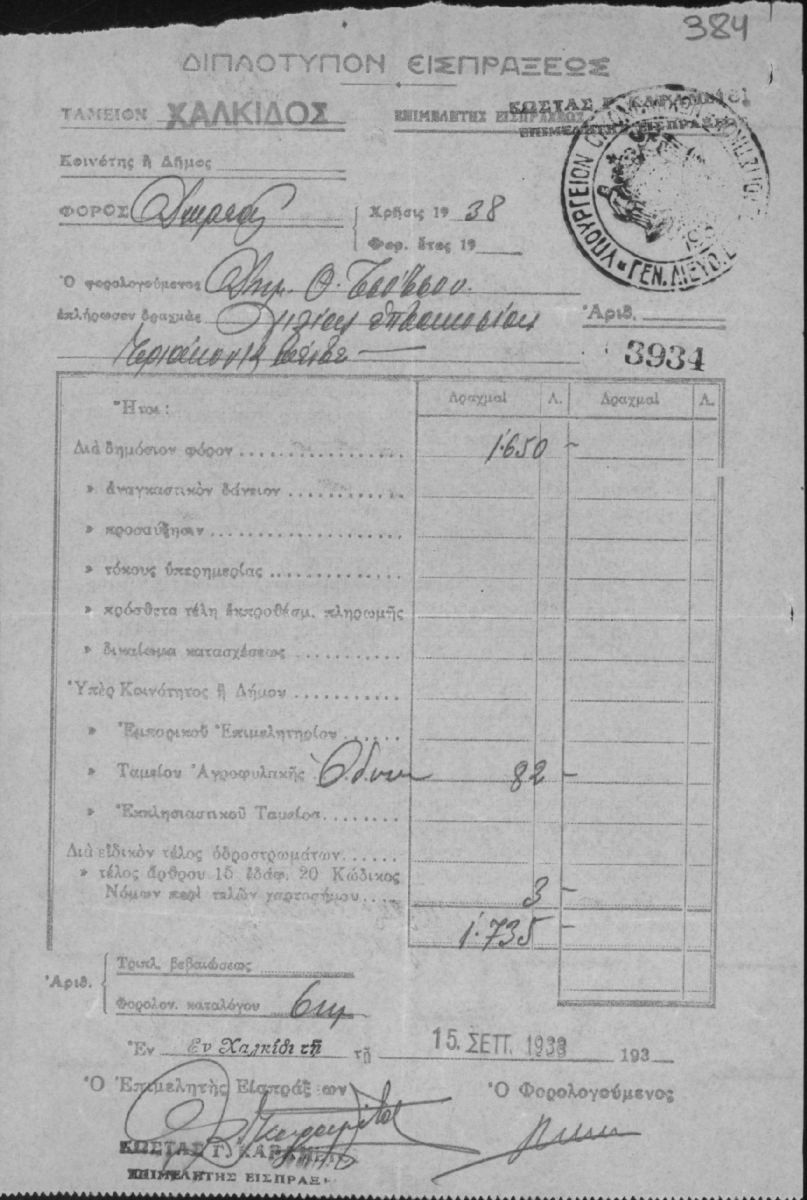 384
ΔΙΠΛΟΤΥΠΟΝ ΕΙΣΠΡΑΞΕΩΣ
ΤΑΜΕΙΟΝ ΧΑΛΚΙΔΟΣ
ΕΠΙΜΕΛΗΤΗΣ ΕΙΣΠΡΑΞΕΩΣ
ΚΩΣΤΑΣ Γ.
ΕΠΙΜΕΛΗΤΗΣ ΕΙΣΠΡΑΞΕΩΣ
ΥΠΟΥΡΓΕΙΟΝ
ΓΕΝ.
Κοινότης ἢ Δῆμος
ΦΟΡΟΣ
Χρῆσις 19 38
Φορ. ἔτος 19
Ὁ φορολογούμενος Δημ. Θ.
ἐπλήρωσεν δραχμὰς Χιλίας ἑπτακοσίας
Ἀριθ.
τριάκοντα πέντε —
3934
Ἤτοι:
Δραχμαὶ Λ. Δραχμαὶ Λ.
Διὰ δημόσιον φόρον 1.650 –
» ἀναγκαστικὸν δάνειον
» προσαύξησιν
» τόκους ὑπερημερίας
» πρόσθετα τέλη ἐκπροθέσμ. πληρωμῆς
» δικαίωμα κατασχέσεως
Ὑπὲρ Κοινότητος ἢ Δήμου
» Ἐμπορικοῦ Ἐπιμελητηρίου
» Ταμείου Ἀγροφυλακῆς 82 –
» Ἐκκλησιαστικοῦ Ταμείου
Διὰ εἰδικὸν τέλος ὁδοστρωμάτων
» τέλος ἄρθρου 15 ἐδάφ. 20 Κώδικος
Νόμων περὶ τελῶν χαρτοσήμου 3 –
1.735 –
Ἀριθ.
Τριπλ. βεβαιώσεως
Φορολογ. καταλόγου
Ἐν Ἐν Χαλκίδι τῇ τῇ 15. ΣΕΠ. 1938 193
Ὁ Ἐπιμελητὴς Εἰσπράξεων
Ὁ Φορολογούμενος
ΚΩΣΤΑΣ Γ.
ΕΠΙΜΕΛΗΤΗΣ ΕΙΣΠΡΑΞ